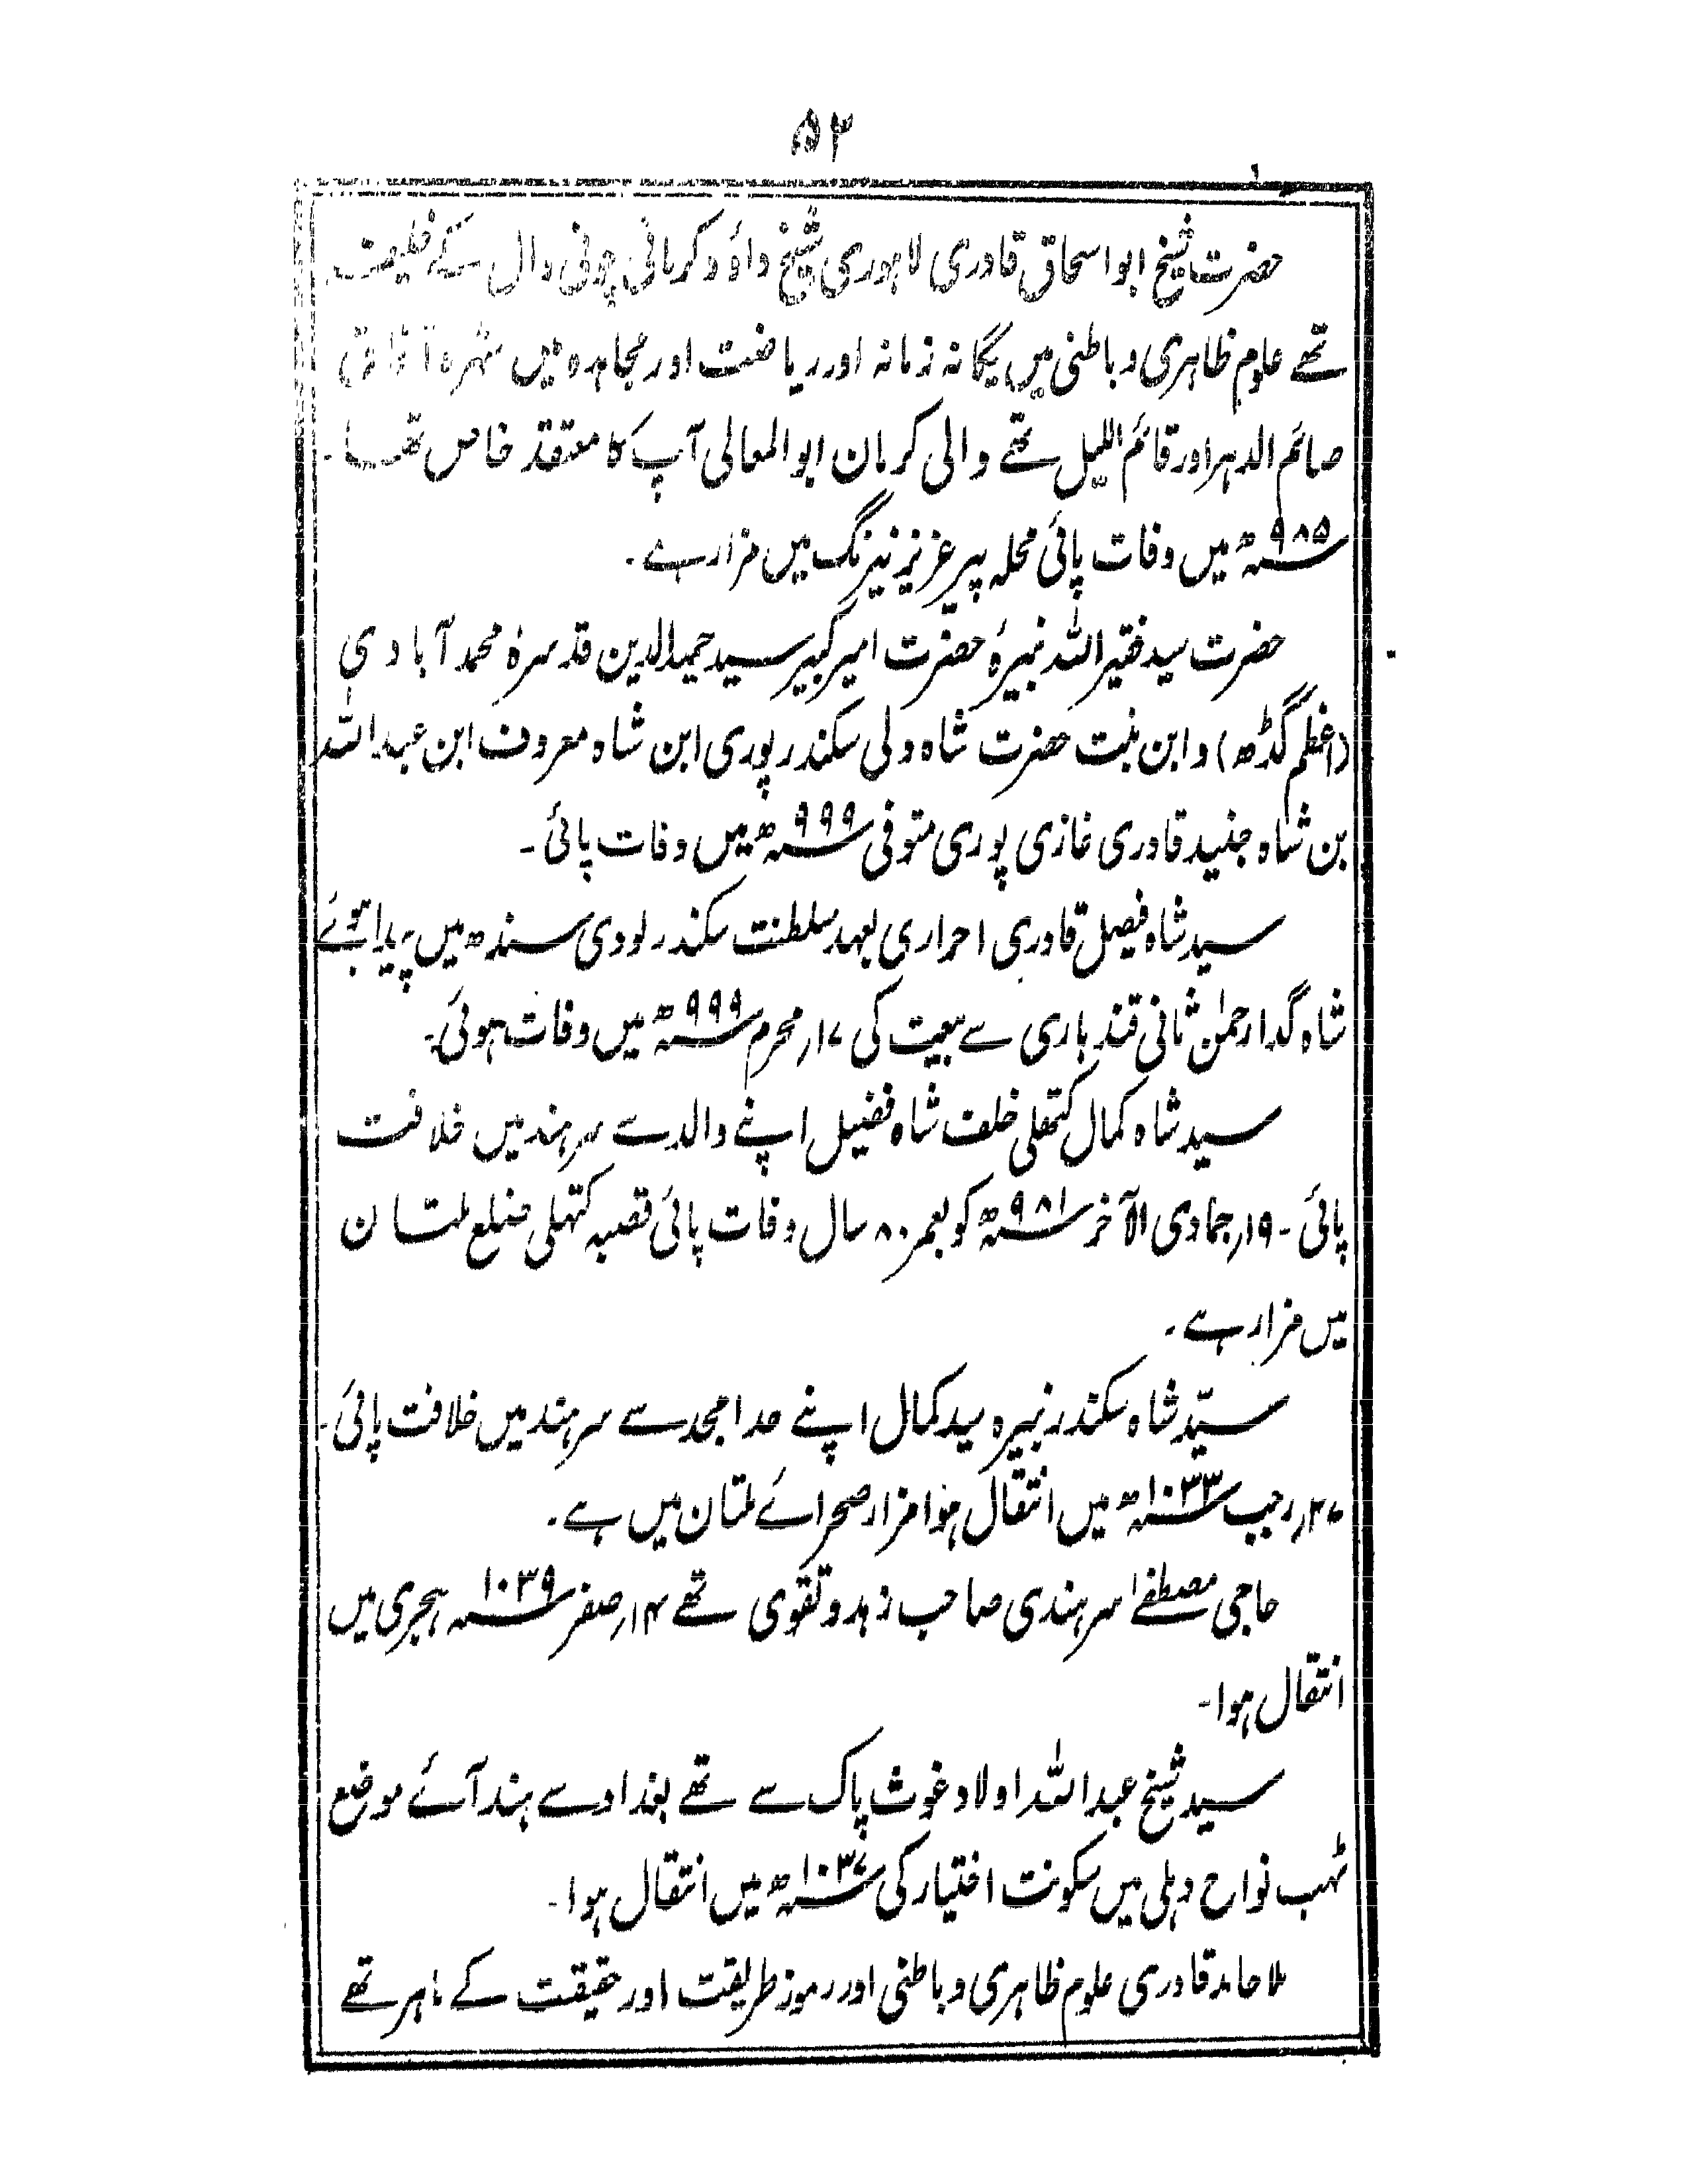 ۵۲
حضرت شیخ ابو اسحاق قادری لاہوری شیخ داؤد کرمانی چونی وال کے خلیفہ
تھے علوم ظاہری و باطنی میں یگانہ زمانہ اور ریاضت اور مجاہدہ میں شہرہ آفاق
صائم الدہر اور قائم اللیل تھے والی کرمان ابو المعالی آپ کا معتقد خاص تھا۔
۹۸۵ھ میں وفات پائی محلہ پیر عزیز نیرنگ میں مزار ہے۔
حضرت سید فقیر اللہ نبیرۂ حضرت امیر کبیر سید حمید الدین قدسرہٗ محمد آبادی
(اعظم گڈھ) و ابن بنت حضرت شاہ ولی سکندر پوری ابن شاہ معروف ابن عبد اللہ
بن شاہ جنید قادری غازی پوری متوفی ۹۹۹ھ میں وفات پائی۔
سید شاہ فیصل قادری احراری بعہد سلطنت سکندر لودی سندھ میں پیدا ہوئے
شاہ گدا رحمٰن ثانی قندہاری سے بیعت کی ۱۷؍ محرم ۹۹۹ھ میں وفات ہوئی۔
سید شاہ کمال کتھلی خلف شاہ فضیل اپنے والد سے سرہند میں خلافت
پائی۔ ۱۹؍ جمادی الآخر ۹۸۱ھ کو بعمر ۸۰ سال وفات پائی قصبہ کتہلی ضلع ملتان
میں مزار ہے۔
سیّد شاہ سکندر نبیرہ سید کمال اپنے جد امجد سے سرہند میں خلافت پائی۔
۲۷؍ رجب ۱۰۳۳ھ میں انتقال ہوا مزار صحرائے ملتان میں ہے۔
حاجی مصطفےٰ سرہندی صاحب زہد و تقوی تھے ۱۴؍ صفر ۱۰۳۹ ہجری میں
انتقال ہوا۔
سید شیخ عبد اللہ اولاد غوث پاک سے تھے بغداد سے ہند آئے موضع
ٹہب نواح دہلی میں سکونت اختیار کی ۱۰۳۷ھ میں انتقال ہوا۔
ملا حامد قادری علوم ظاہری و باطنی اور رموز طریقت اور حقیقت کے ماہر تھے